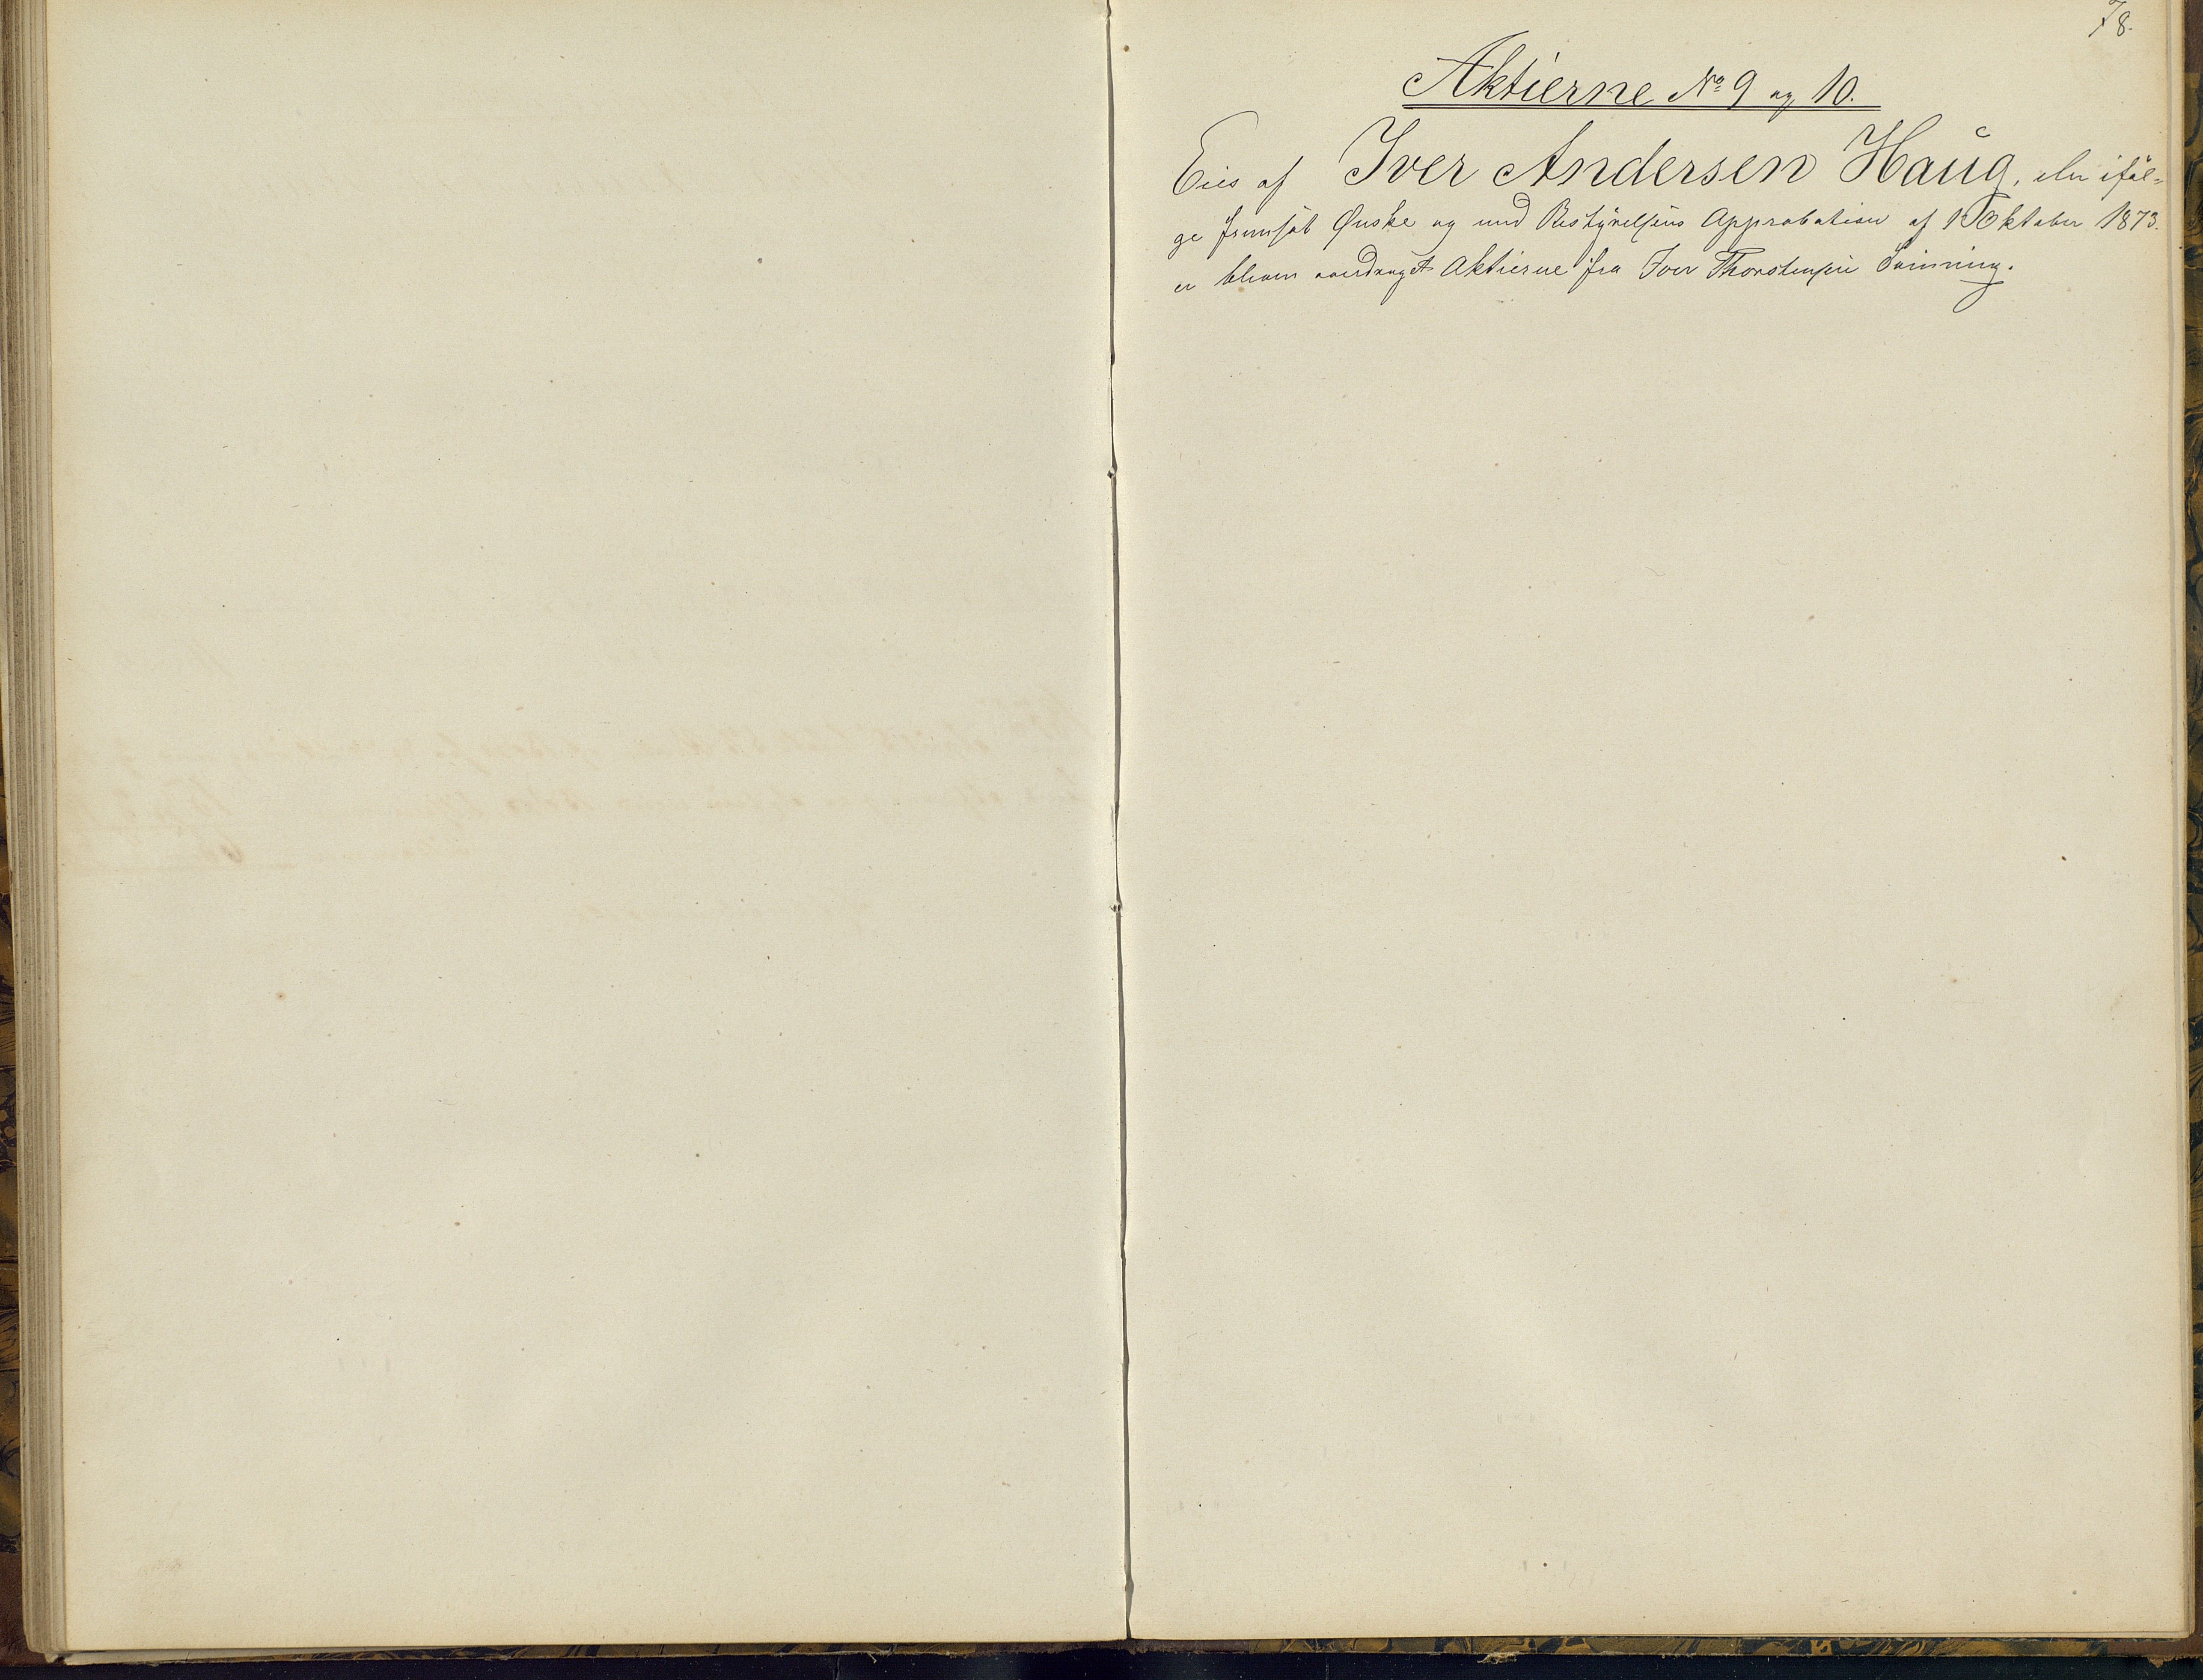 78.
Aktierne No 9 og 10.
Eies af Iver Andersen Haug, der iføl-
ge fremsat Ønske og med Bestyrelsens Approbation af 1 Oktober 1873.
er bleven overdraget Aktierne fra Iver Thorstensen